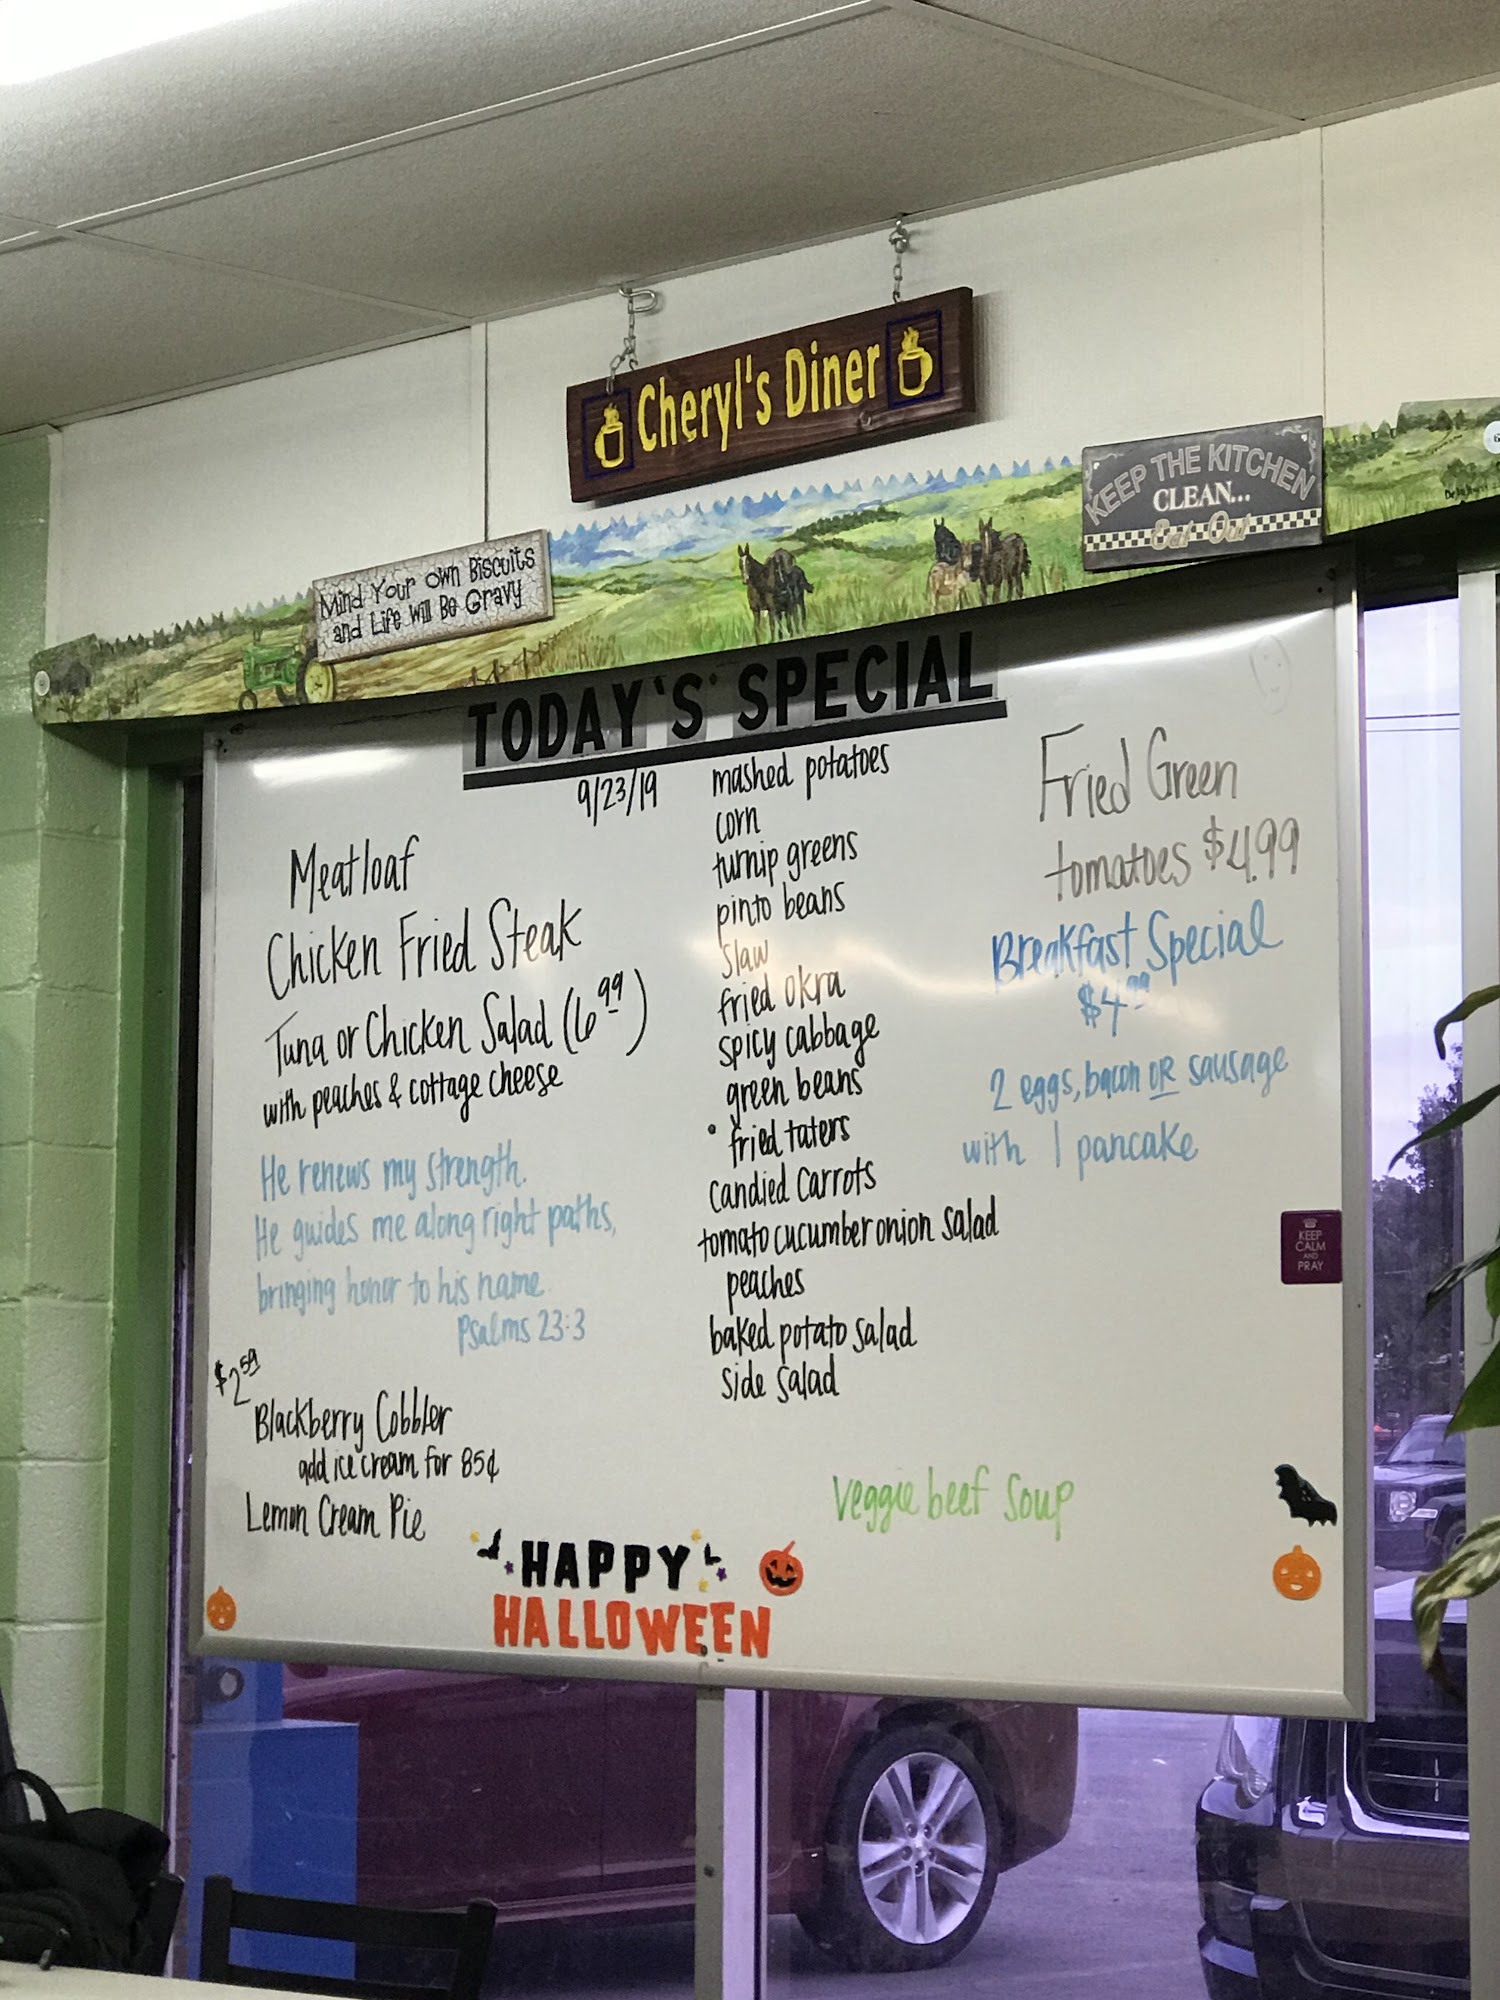 Cheryl's Diner
KEEP THE KITCHEN
CLEAN...
Eat Out
Mind Your own Biscuits
and Life Will Be Gravy
TODAY'S SPECIAL
9/23/19
Meatloaf
Chicken Fried Steak
Tuna or Chicken Salad (6.99)
with peaches & cottage cheese
He renews my strength.
He guides me along right paths,
bringing honor to his name.
Psalms 23:3
$2.59
Blackberry Cobbler
add ice cream for 85¢
Lemon Cream Pie
mashed potatoes
corn
turnip greens
pinto beans
slaw
fried okra
spicy cabbage
green beans
• fried taters
candied carrots
tomato cucumber onion salad
peaches
baked potato salad
side salad
Fried Green
tomatoes $4.99
Breakfast Special
$4.99
2 eggs, bacon OR sausage
with 1 pancake
KEEP
CALM
AND
PRAY
veggie beef soup
HAPPY
HALLOWEEN